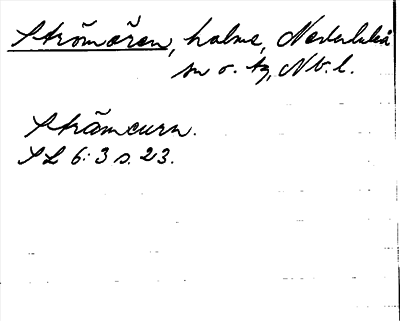 Strömören, holme, Nederluleå
sn o. tg, Nb. l.
Strãmcurn.
SL 6:3 s. 23.